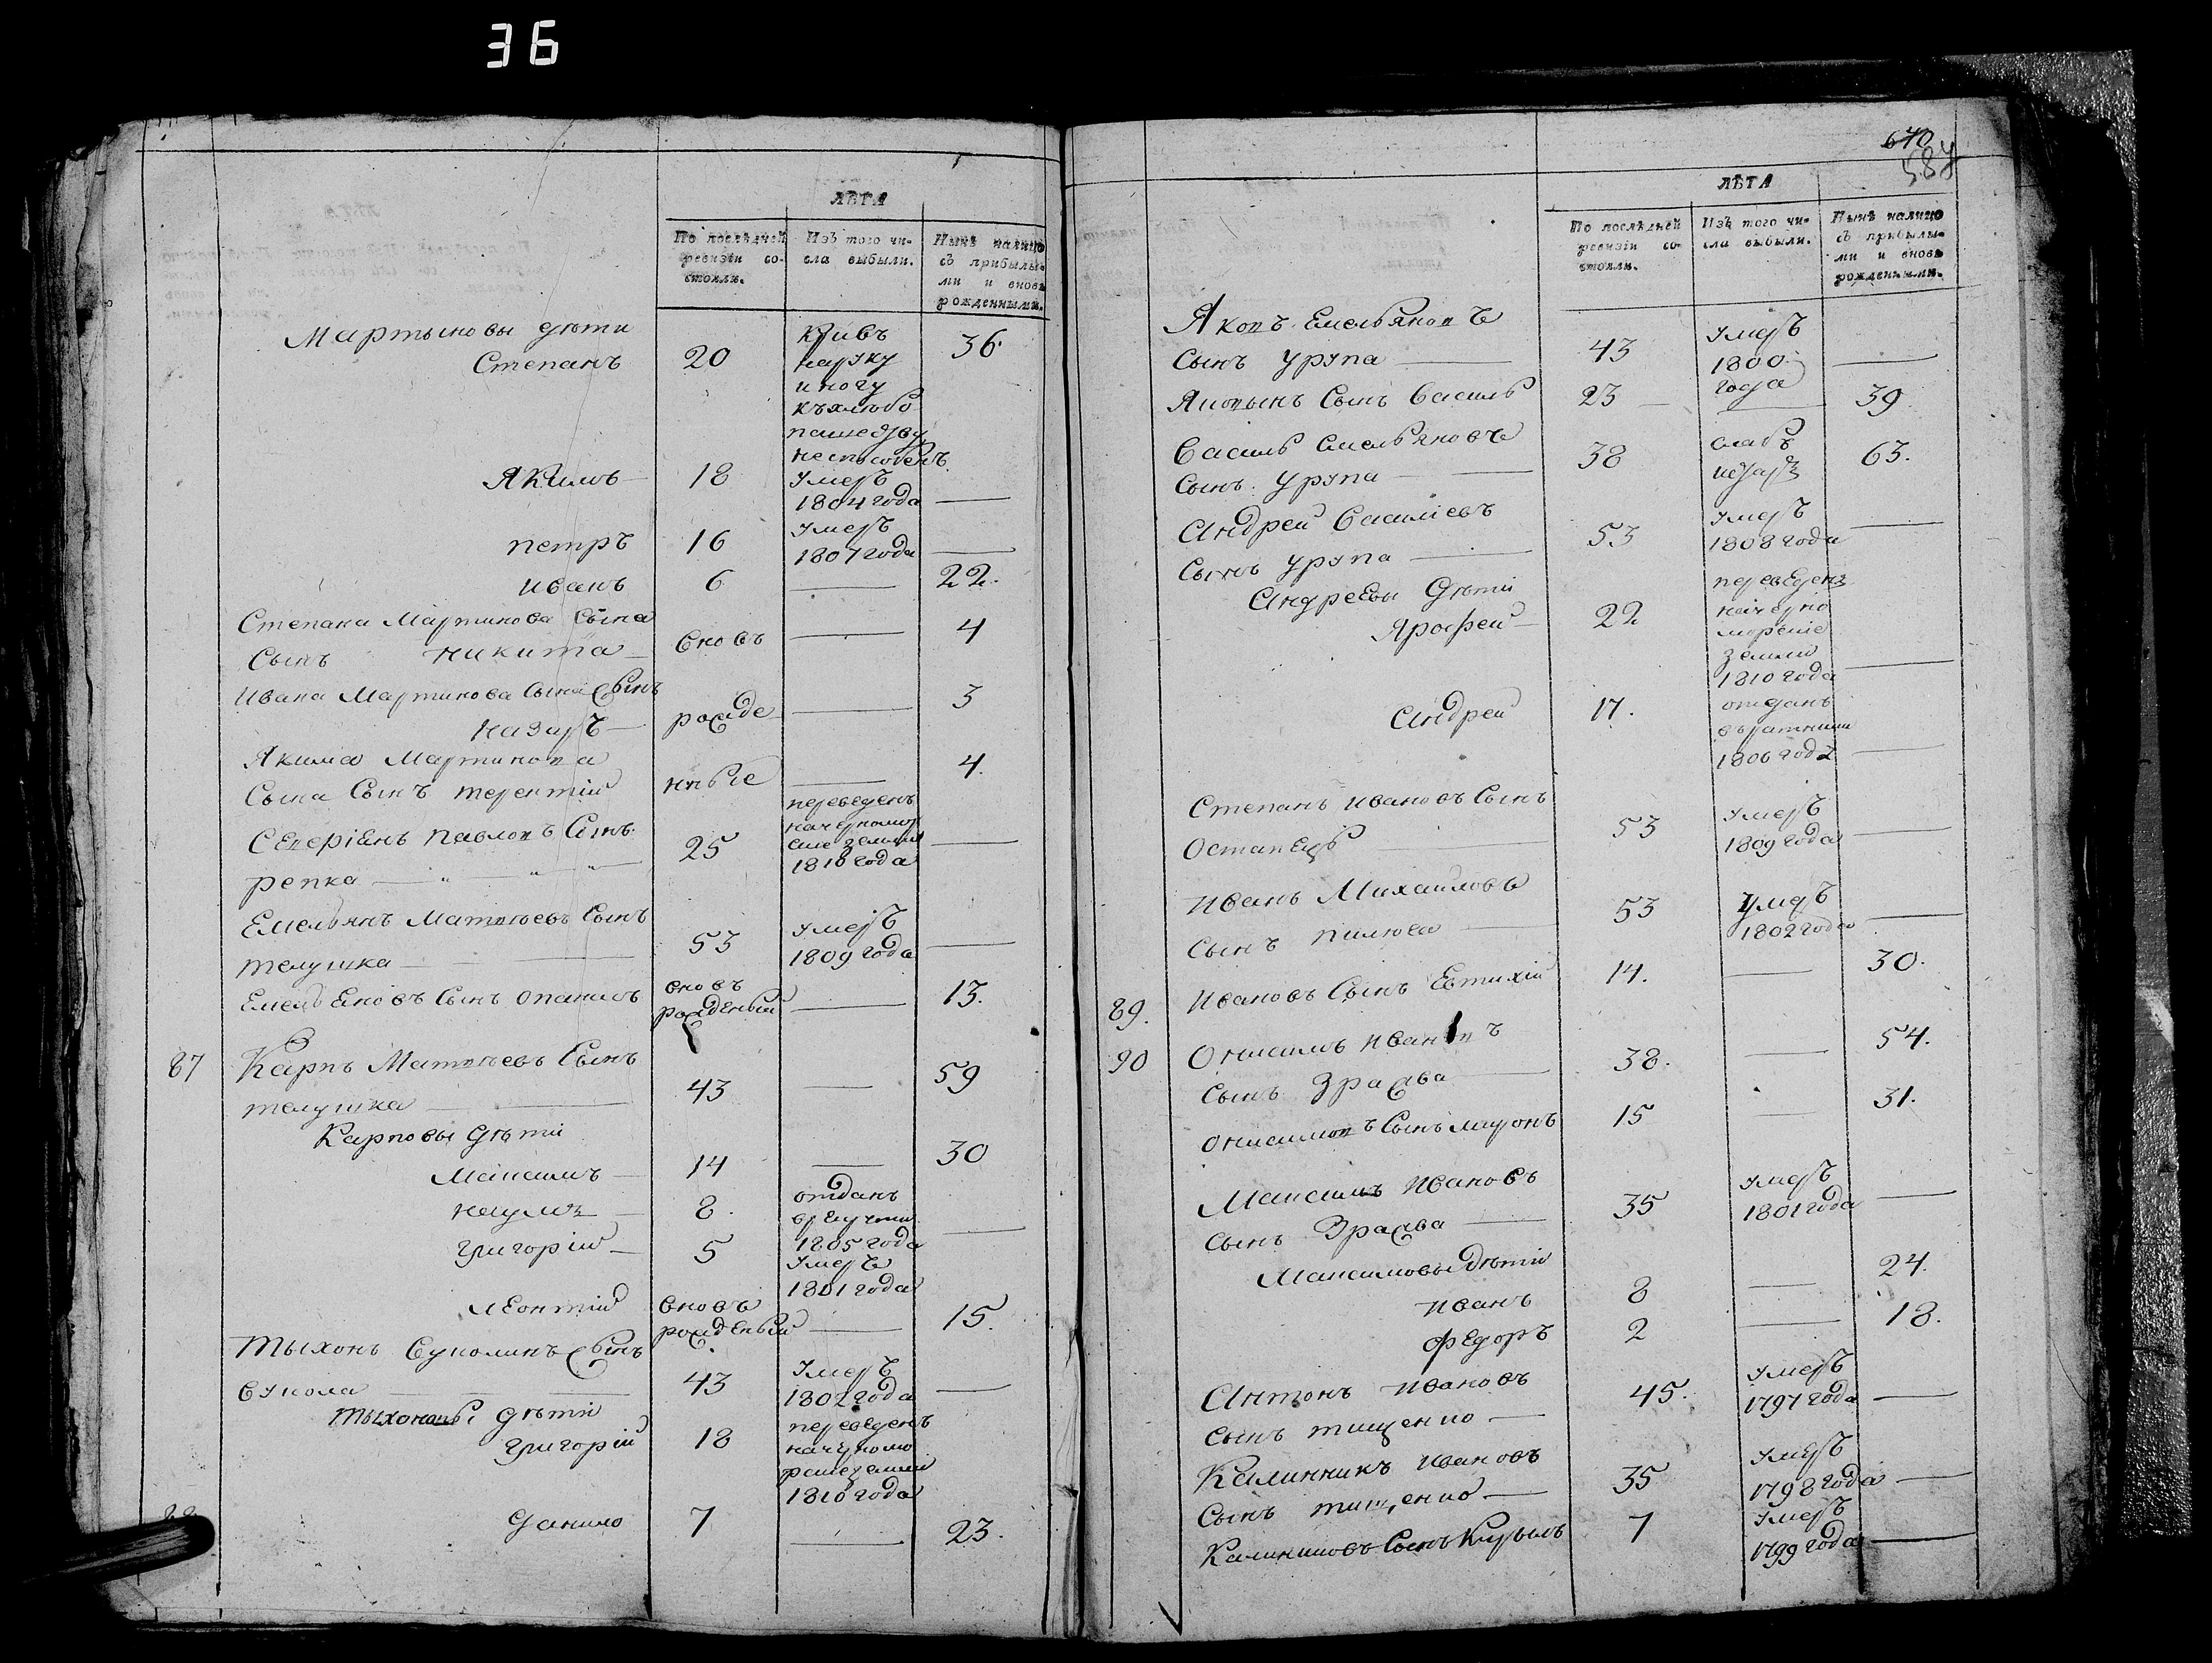 36
ЛѢТА
По послѣдней ревизіи состояли.
Изъ того числа выбыли.
Нынѣ налицо съ прибылыми и вновь рожденными.
Мартыновы дѣти
Степанъ 20 Кривъ 36.
на руку
и ногу
къ хлебо
пашедзву
неспособенъ
Якимъ 18 Умеръ
1804 года
Петръ 16 Умеръ
1807 года
Иванъ 6 22.
Степана Мартинова Сына
Сынъ Никита вновь 4
Ивана Мартинова Сына Сынъ
Назаръ рожде 3
Якима Мартинова
Сына Сынъ Терентій нные 4.
Павловъ Сынъ переведенъ
репка 25 на черномор
ские земли
1810 года
Емельянъ Матвѣевъ Сынъ
телушка 53 Умеръ
1809 года
Емельяновъ Сынъ Опанасъ вновь
рожденый 13.
87 Карпъ Матвѣевъ Сынъ
телушка 43 59
Карповы дѣти
Максимъ 14 30
Наумъ 8. отданъ
в рекруты
1805 года
Григорій 5 Умеръ
1801 года
Леонтій вновь
рожденый 15.
Тыхонъ Сынъ
43 Умеръ
1802 года
Тыхоновы дѣти
Григорій 18 переведенъ
на черномо
рские земли
1810 года
Данило 7 23.
670
587
ЛѢТА
По послѣдней ревизіи состояли.
Изъ того числа выбыли.
Нынѣ налицо съ прибылыми и вновь рожденными.
Яковъ Емельяновъ
Сынъ Урупа 43 Умеръ
1800.
года
Яковынъ Сынъ Василь 23 39
Василь Емельяновъ
Сынъ Урупа 38 слабъ 63.
Андрей Василіевъ
Сынъ Урупа 53 Умеръ
1808 года
Андреевы Дѣти
Ярофей 22 переведенъ
на черно
морские
земли
1810 года
Андрей 17. отданъ
в ратники
1806 года
Степанъ Ивановъ Сынъ
Остапецъ 53 Умеръ
1809 года
Иванъ Михайловъ
Сынъ Пилюга 53 Умеръ
1802 года
89. Ивановъ Сынъ Евтихій 14. 30.
90 Онисимъ Ивановъ
Сынъ Зражва 38. 54.
Онисимовъ Сынъ Миронъ 15 31.
Максимъ Ивановъ
Сынъ Зражва 35 Умеръ
1801 года
Максимовы Дѣти
Иванъ 8 24.
Федоръ 2 18.
Антонъ Ивановъ
Сынъ Тищенко 45. Умеръ
1797 года
Калинникъ Ивановъ
Сынъ Тищенко 35 Умеръ
1798 года
Калиниковъ Сынъ Кирылъ 7 Умеръ
1799 года